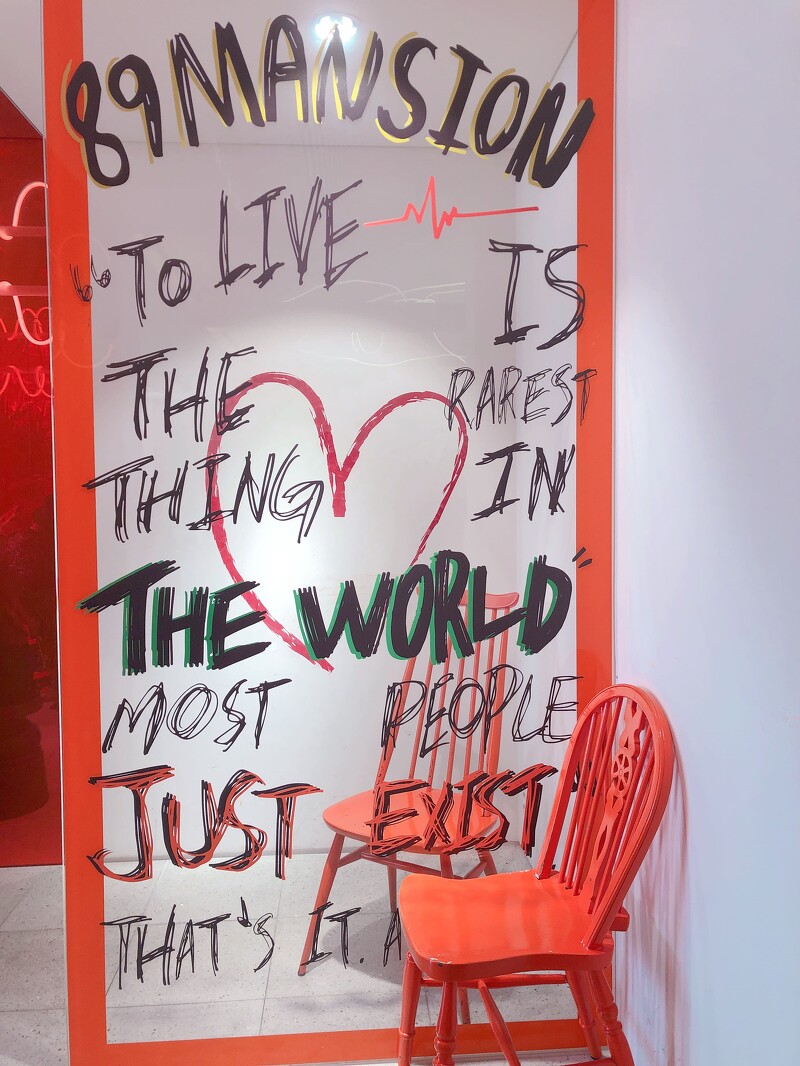 89 MANSION
"TO LIVE IS
THE RAREST
THING IN
THE WORLD"
MOST PEOPLE
JUST EXIST
THAT'S IT. A